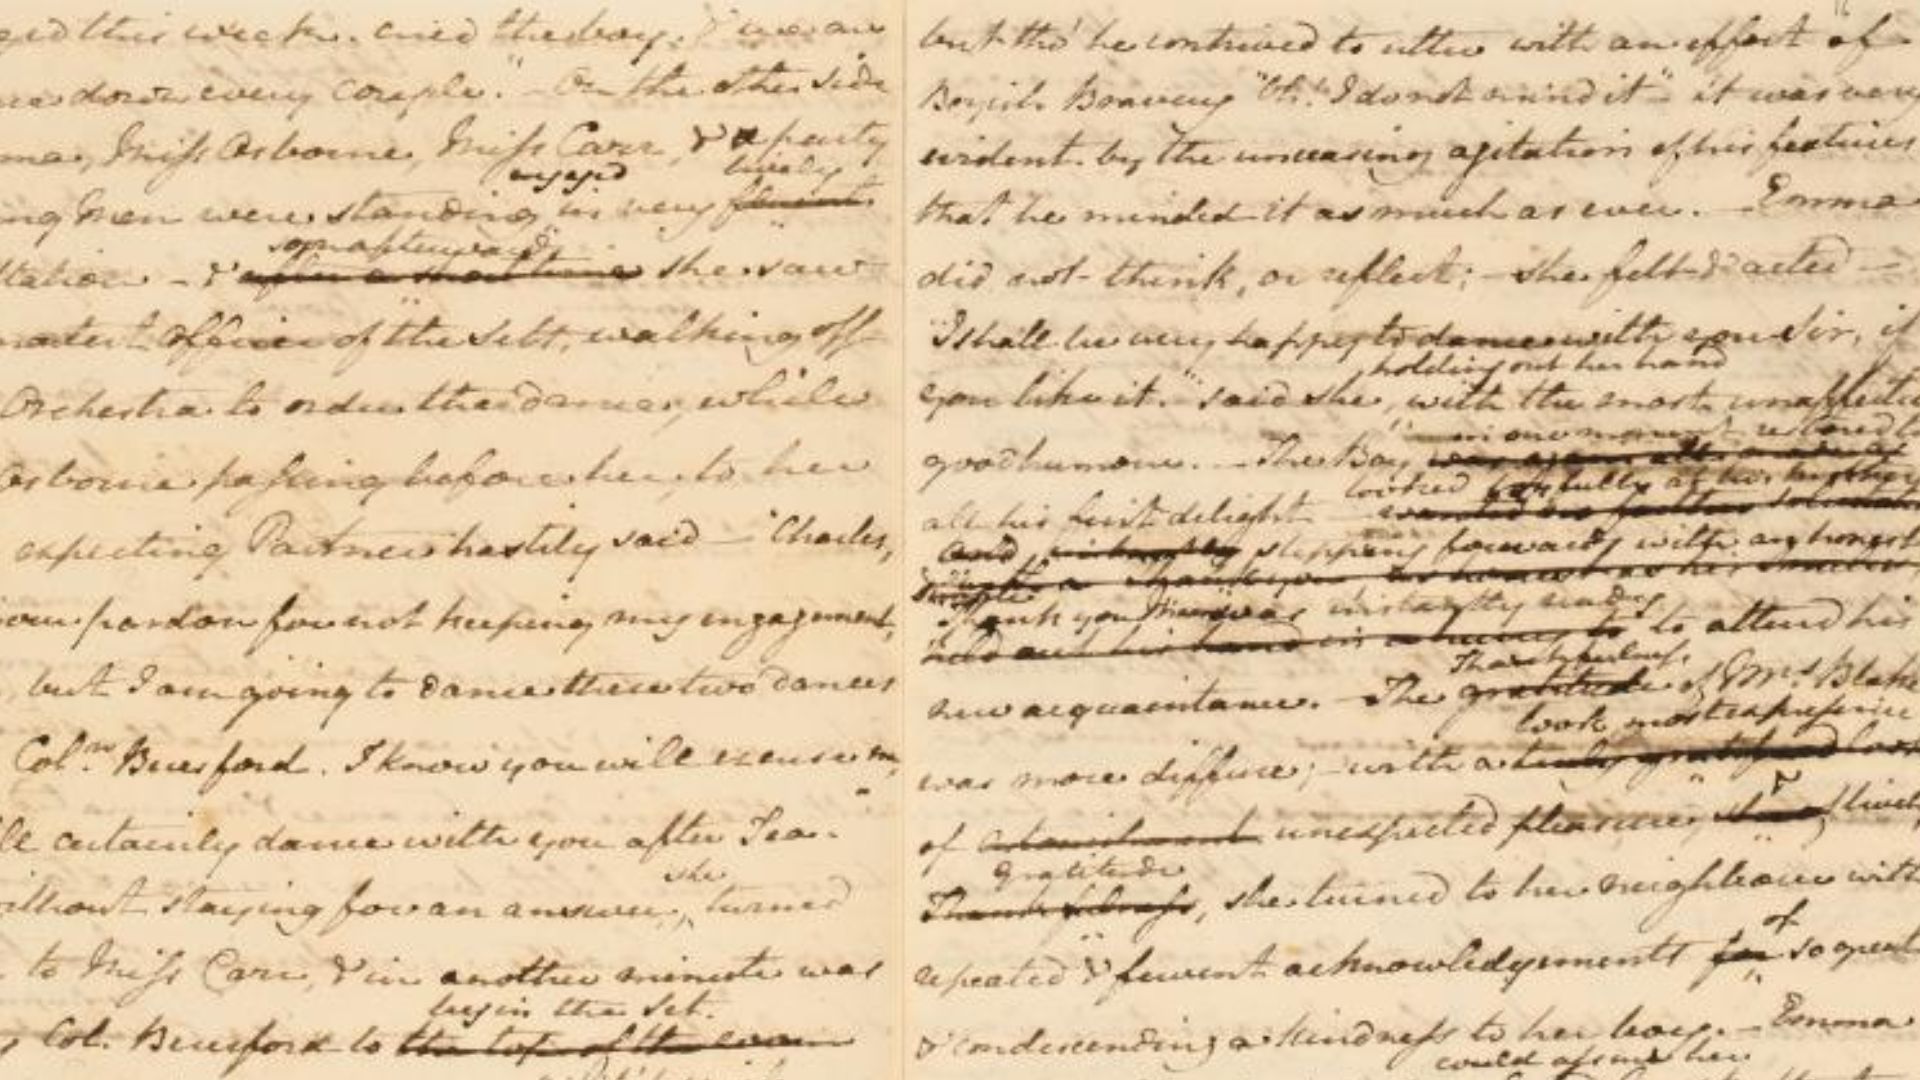 ged this week. cried the boy. & we are
down every couple." - On the other side
Miss Osborne, Miss Carr, & a party
engaged lively
ng Men were standing in very fluent
soon afterwards
tation - & after a short time she saw
Officer of the Sett, walking off
Orchestra to order the dance, while
Osborne passing before her, to her
expecting Partner hastily said - "Charles,
pardon for not keeping my engagement,
but I am going to dance these two dances
Coln. Beresford. I know you will excuse me,
certainly dance with you after Tea.
she
without staying for an answer, turned
to Miss Carr, & in another minute was
begin the set.
Col. Beresford to the top of the room
but tho' he contrived to utter with an effort of
Boyish Bravery "Oh! I do not mind it" it was very
evident by the unceasing agitation of his features
that he minded it as much as ever. - Emma
did not think, or reflect; - she felt & acted -
"I shall be very happy to dance with you Sir, if
holding out her hand
you like it." said she, with the most unaffected
in one moment restored to
good humour. - The Boy
looked joyfully at his Mother
all his first delight
and stepping forwards with an honest
Thank you Maam was instantly ready to attend his
held out his hand in a hurry to
Thankfulness
new acquaintance. - The gratitude of Mrs. Blake
look most expressive
was more diffuse; - with a truly gratified look
of astonishment unexpected pleasure, & lively
Gratitude
Thankfulness, she turned to her neighbour with
of
repeated & fervent acknowledgements for so great
& condescending a kindness to her boy. - Emma
could assure her